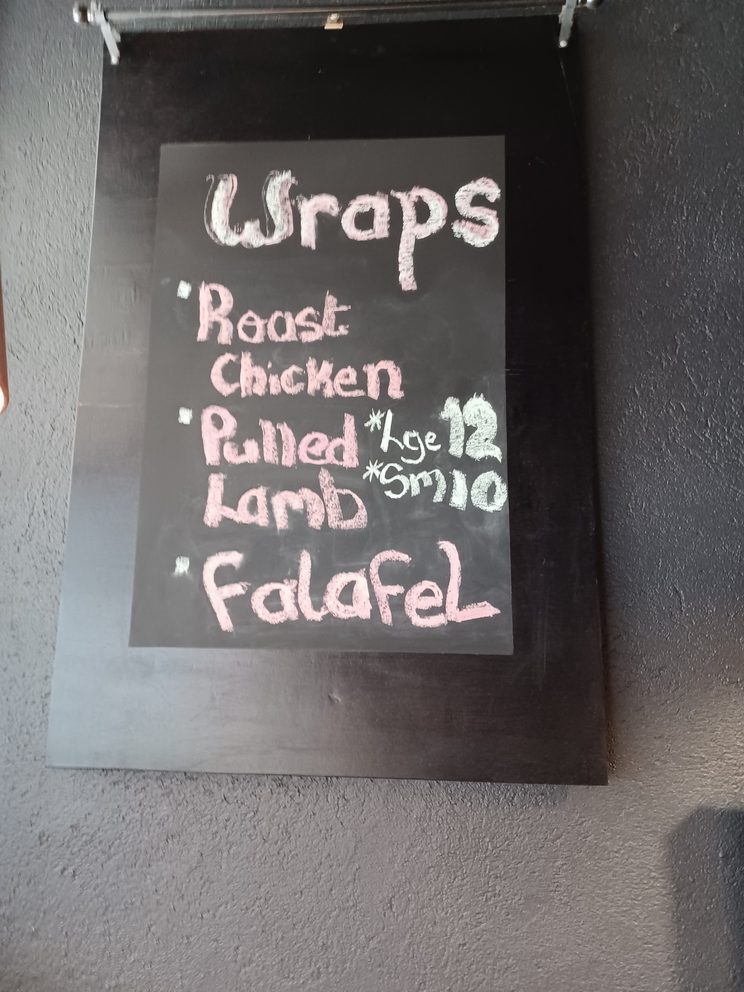 Wraps
Roast
Chicken
Pulled *Lge 12
Lamb *Sm 10
FalafeL